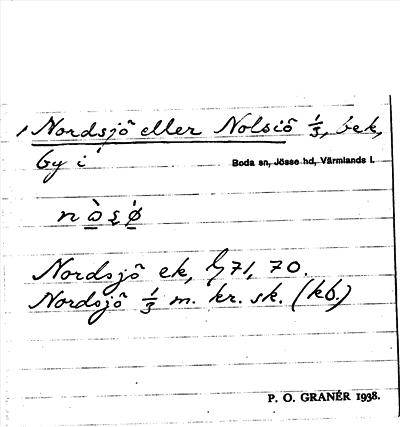 1 Nordsjö eller Nolsiö 1/3, bek,
by i
Boda sn, Jösse hd, Värmlands l.
Nordsjö ek, 71, 70.
Nordsjö 1/3 m. kr. sk. (kb.)
P. O. GRANÉR 1938.